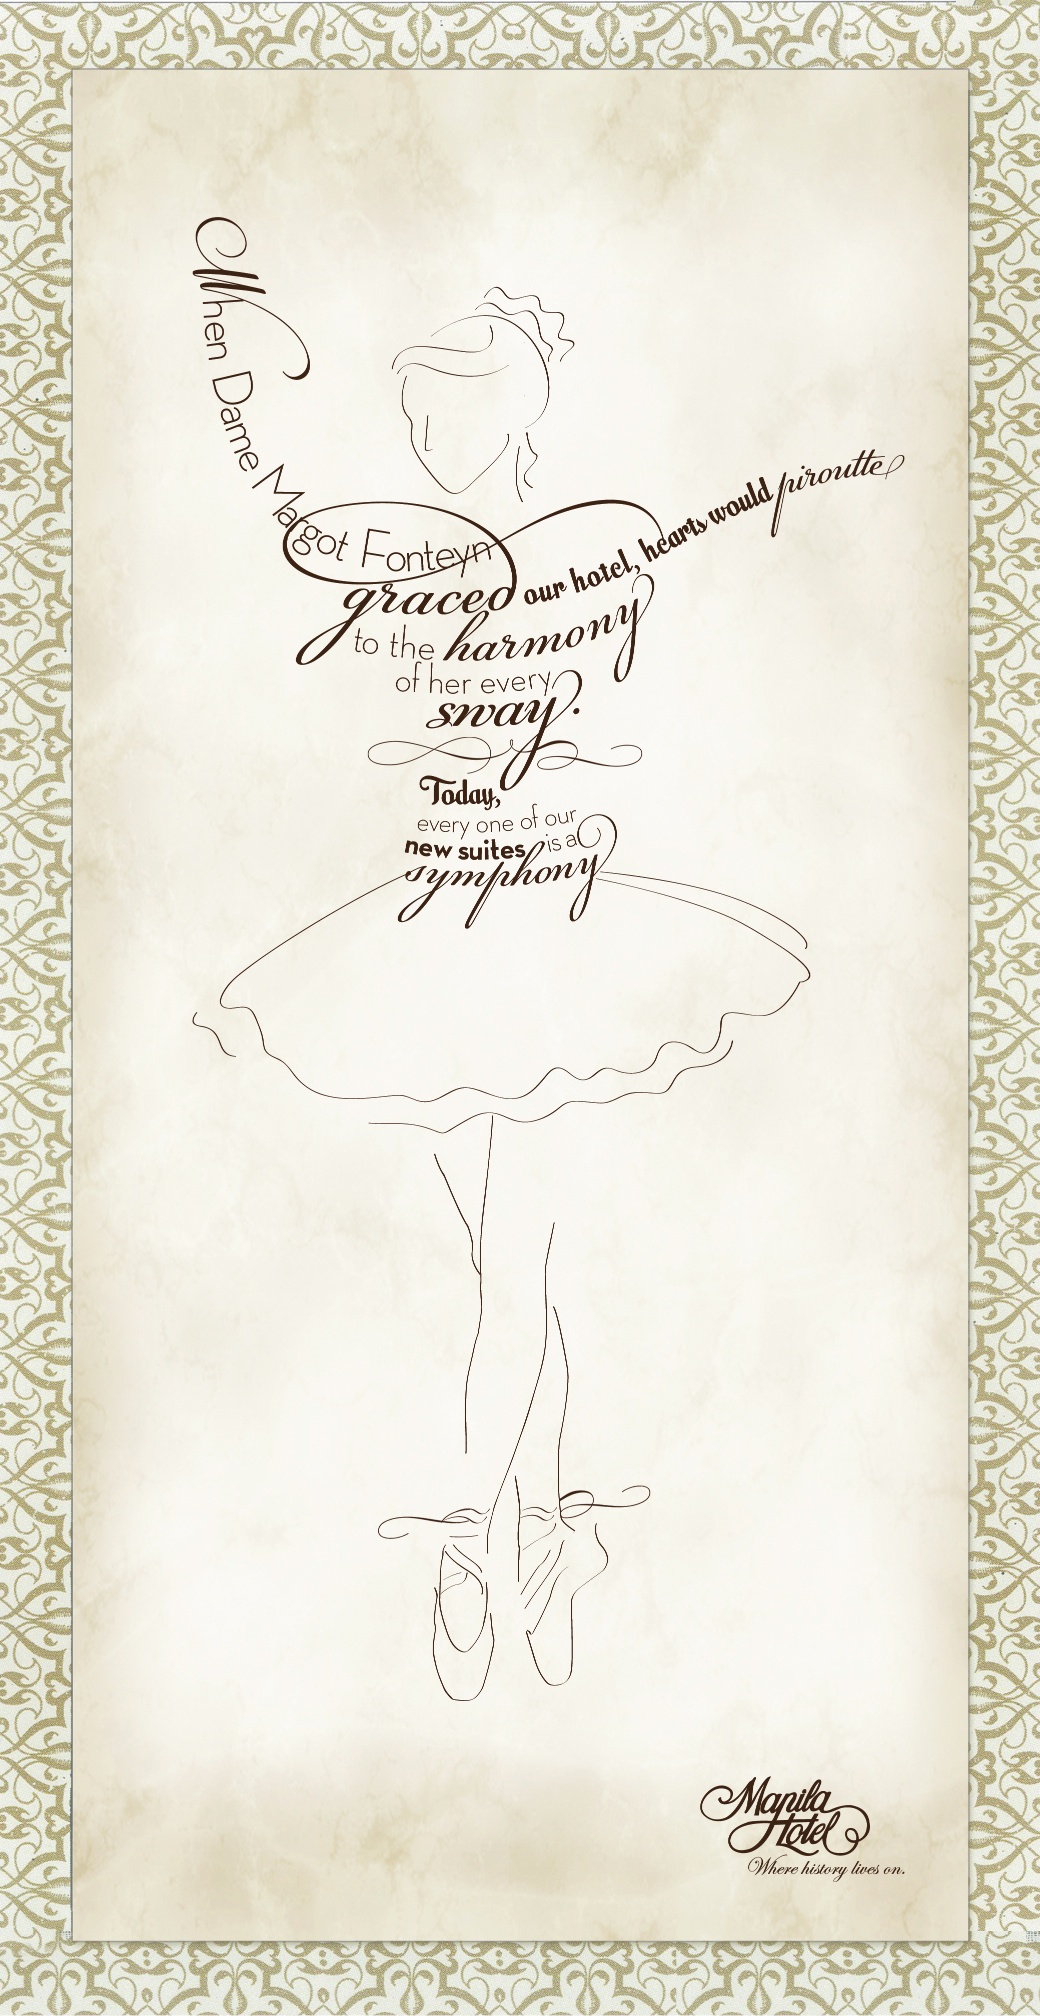 When Dame Margot Fonteyn
graced our hotel, hearts would piroutte
to the harmony
of her every
sway.
Today,
every one of our
new suites is a
symphony
Manila
Hotel
Where history lives on.